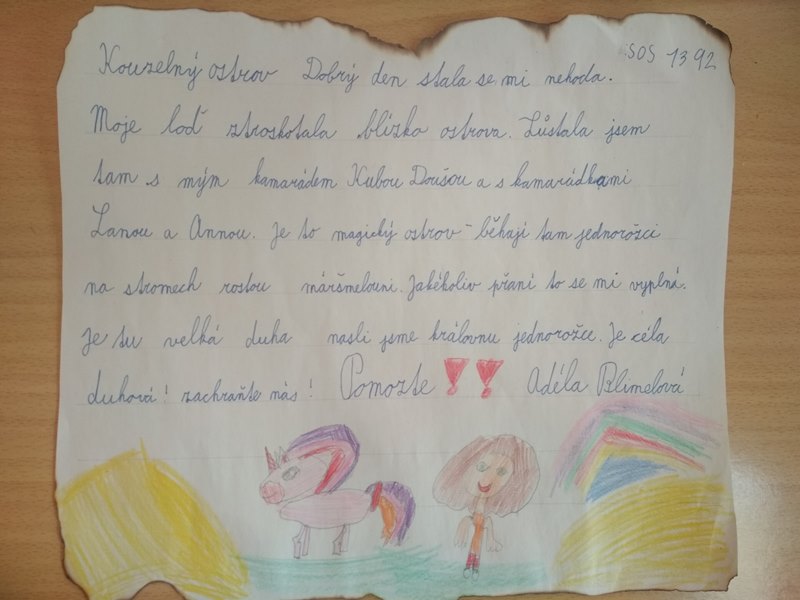 Kouzelný ostrov Dobrý den stala se mi nehoda. SOS 1392
Moje loď ztroskotala blízko ostrova. Zůstala jsem
tam s mým kamarádem Kubou Doušou a s kamarádkami
Lanou a Annou. Je to magický ostrov - běhají tam jednorožci
na stromech rostou máršmelouni. Jakékoliv přaní to se mi vyplní.
Je tu velká duha nasli jsme královnu jednorožce. Je céla
duhová! zachraňte nás! Pomozte !! Adéla Blimelová